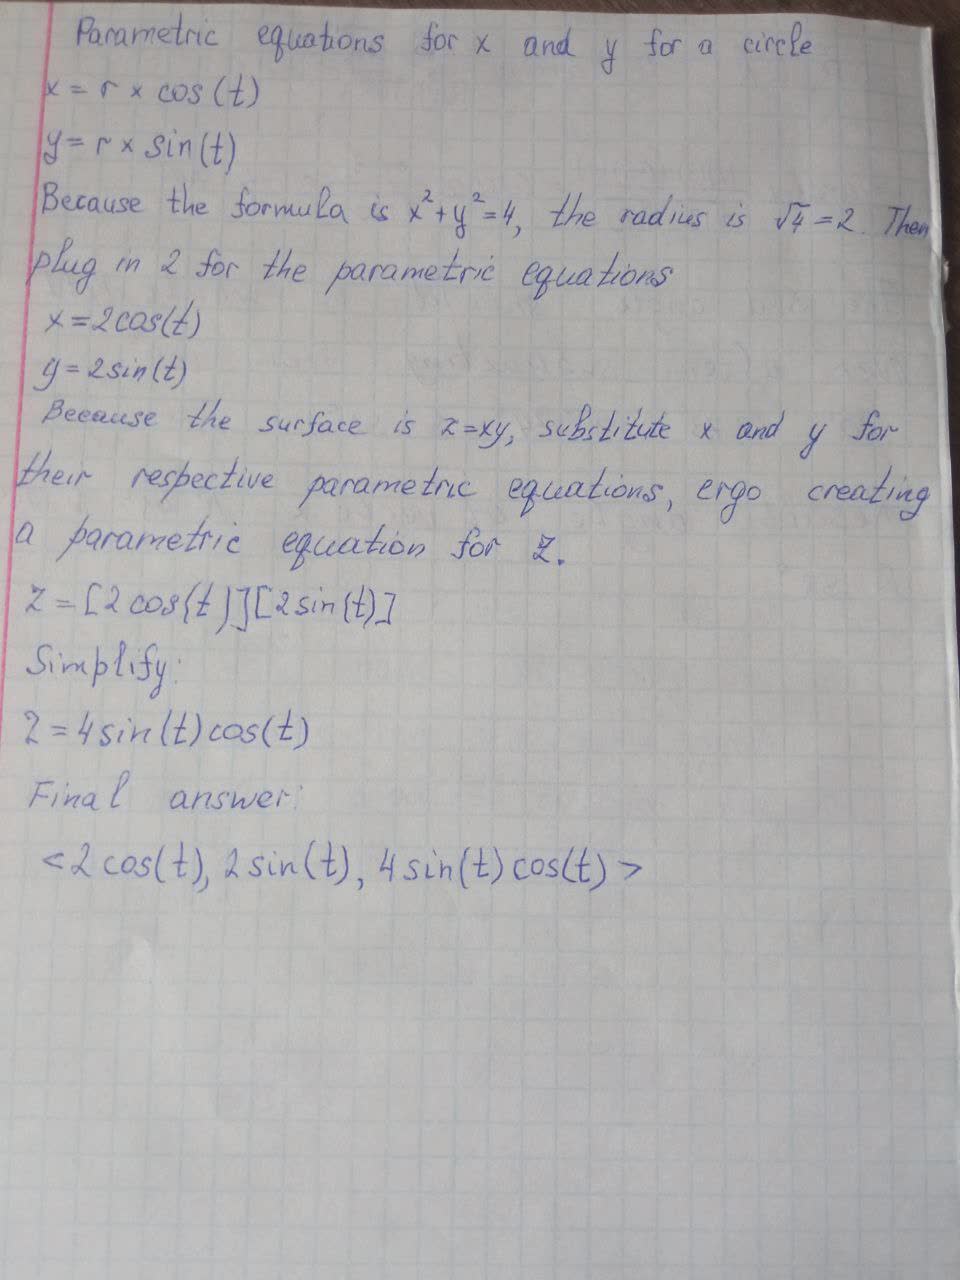 Parametric equations for x and y for a circle
x = r × cos(t)
y = r × sin(t)
Because the formula is x²+y²=4, the radius is √4=2. Then
plug in 2 for the parametric equations
x=2cos(t)
y=2sin(t)
Because the surface is z=xy, substitute x and y for
their respective parametric equations, ergo creating
a parametric equation for z.
z=[2cos(t)][2sin(t)]
Simplify:
z=4sin(t)cos(t)
Final answer:
<2cos(t), 2sin(t), 4sin(t)cos(t)>